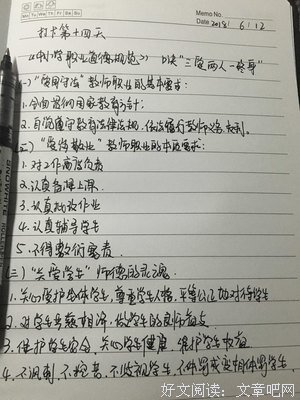 Memo No.
Mo Tu We Th Fr Sa Su
Date 2018 6 12
打卡第十四天
《中小学职业道德规范》 口诀“三爱两人一终身”
(一)“爱国守法”教师职业的基本要求:
1.全面贯彻国家教育方针;
2.自觉遵守教育法律法规,依法履行教师义务权利。
(二)“爱岗敬业”教师职业的本质要求:
1.对工作高度负责
2.认真备课上课
3.认真批改作业
4.认真辅导学生
5.不得敷衍塞责
(三)“关爱学生”师德的灵魂
1.关心爱护全体学生,尊重学生人格,平等公正地对待学生
2.对学生严慈相济,做学生的良师益友
3.保护学生安全,关心学生健康,维护学生权益
4.不讽刺,不挖苦,不歧视学生,不体罚或变相体罚学生
SNOWHITE
好文阅读:文章吧网